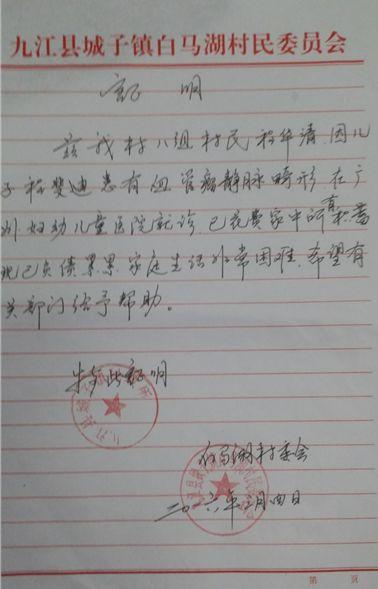 九江县城子镇白马湖村民委员会
证明
兹我村八组村民程华清,因儿
子程斐迪患有血管瘤静脉畸形在广
州妇幼儿童医院就诊,已花费家中所有积蓄
现已负债累累,家庭生活非常困难,希望有
关部门给予帮助。
特此证明
白马湖村委会
二0一六年 月四日
第 页